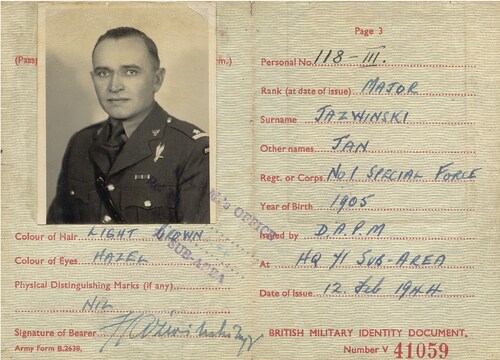 (Pass
m.)
's OFFICE
SUB-AREA
Colour of Hair LIGHT BROWN
Colour of Eyes HAZEL
Physical Distinguishing Marks (if any)
NIL
Signature of Bearer
Army Form B.2638.
Page 3
Personal No. 118-III.
Rank (at date of issue) MAJOR
Surname JAZWINSKI
Other names JAN
Regt. or Corps No 1 SPECIAL FORCE
Year of Birth 1905
Issued by D.A.P.M
At HQ 41 SUB-AREA
Date of Issue 12. Feb 1944
BRITISH MILITARY IDENTITY DOCUMENT.
Number V 41059